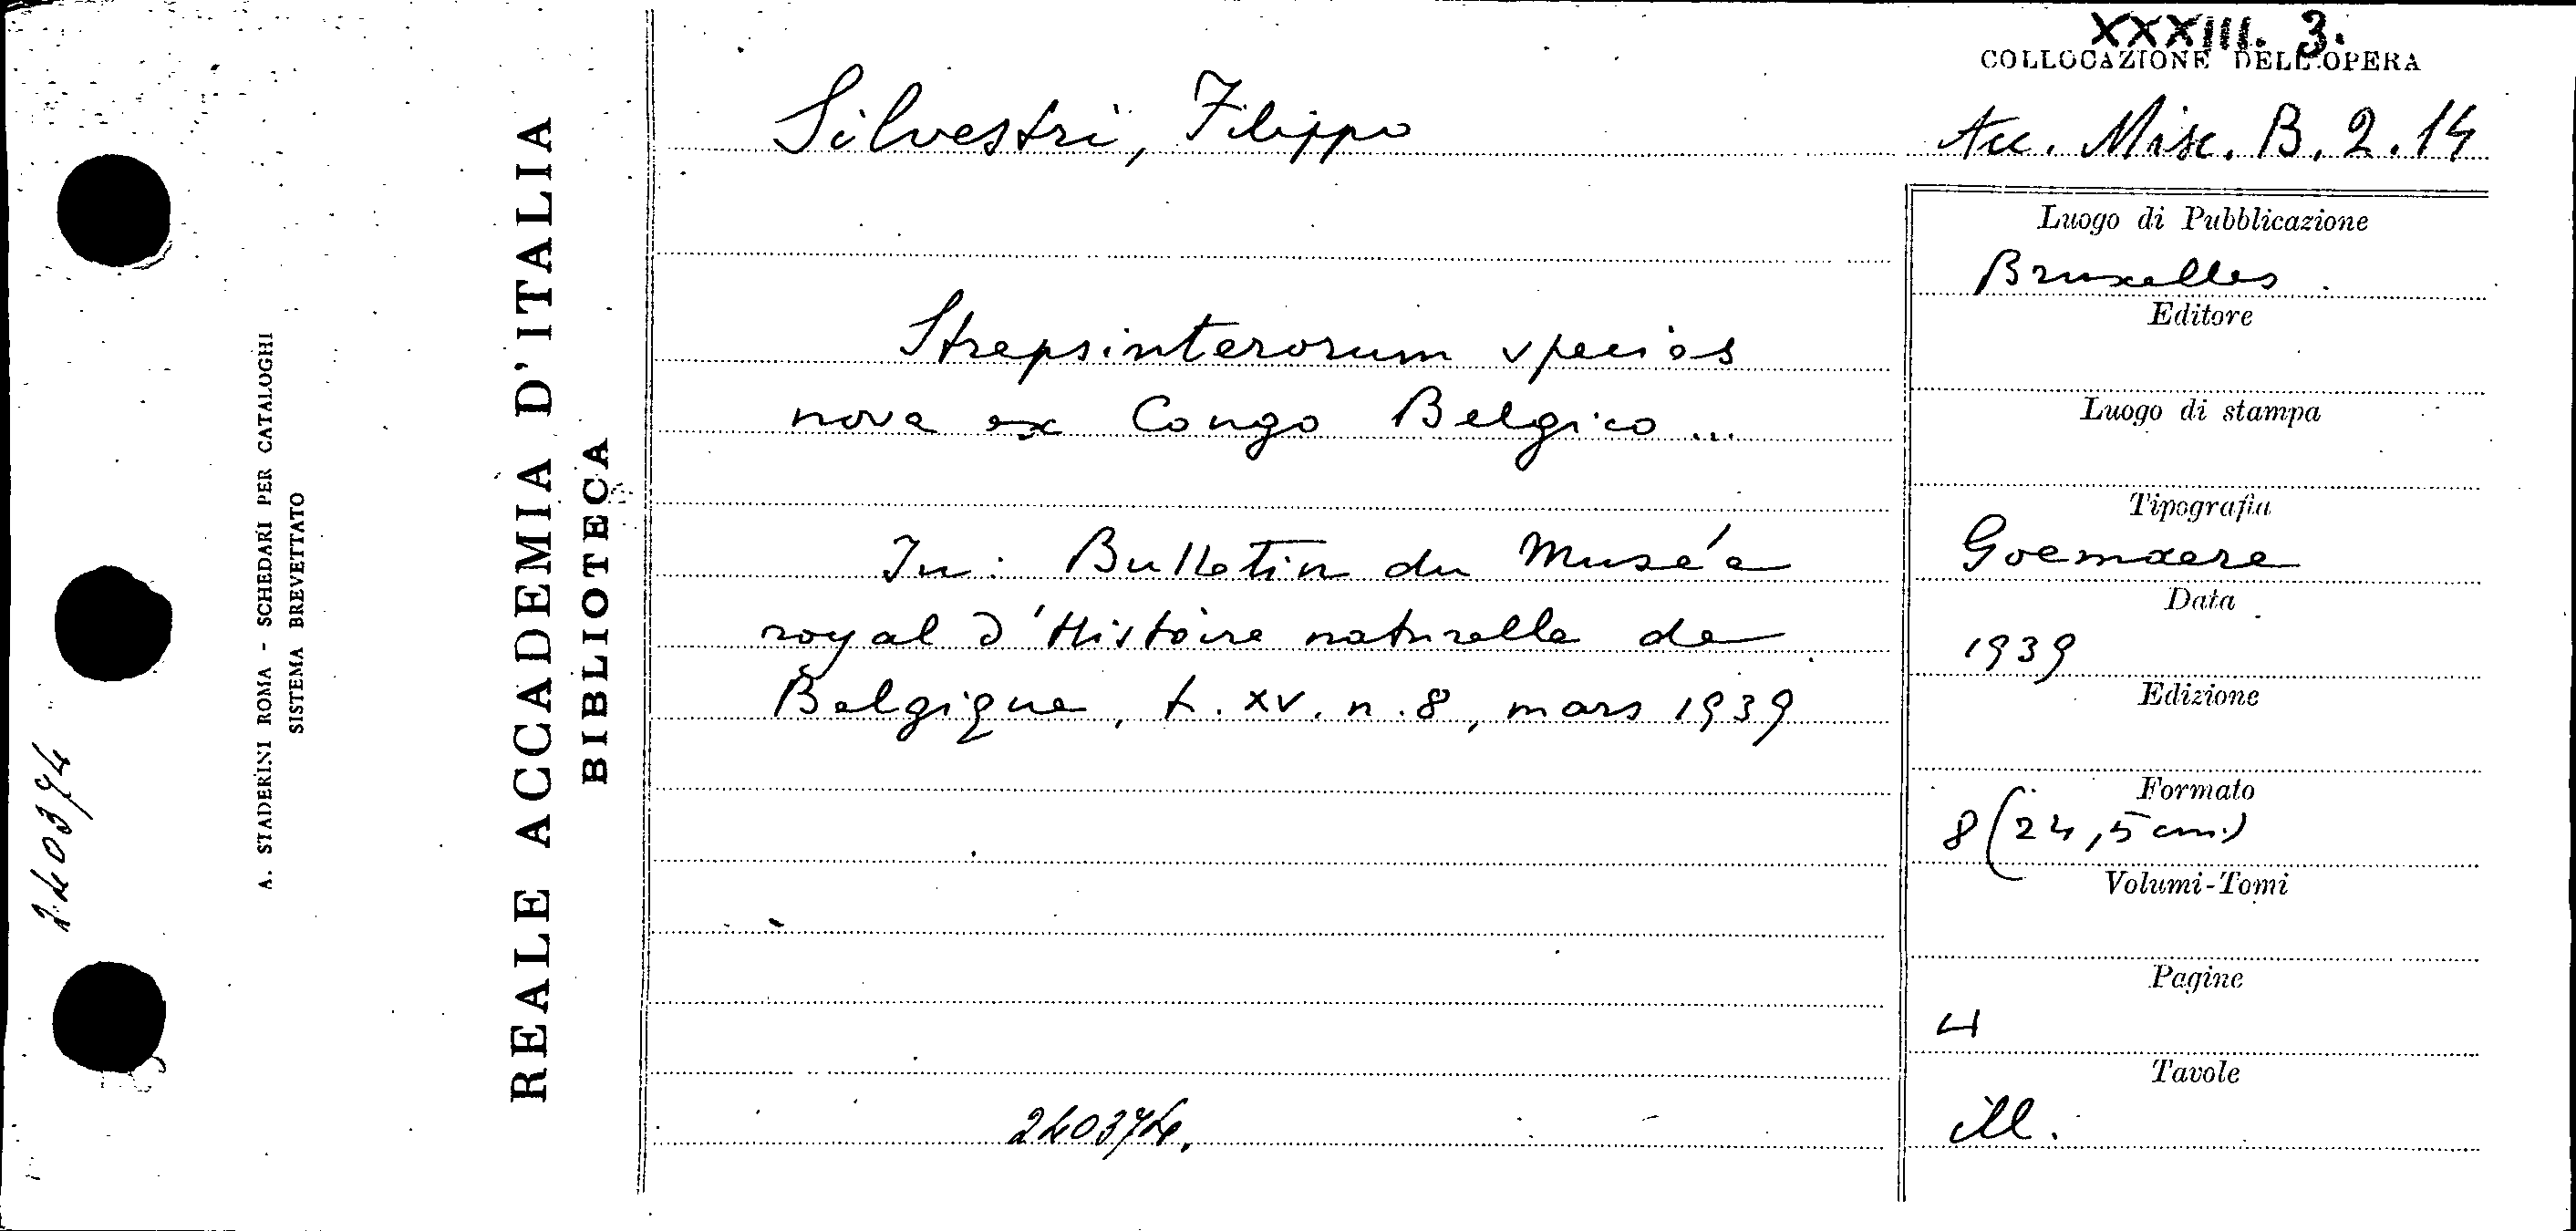 XXXIII. 3.
COLLOCAZIONE DELL'OPERA
Silvestri, Filippo
Acc. Misc. B. 2. 14
Strepsinterorum species
nova ex Congo Belgico ...
In: Bulletin du Musée
royal d'Histoire naturelle de
Belgique, t. XV. n. 8, mars 1939
240374.
Luogo di Pubblicazione
Bruxelles
Editore
Luogo di stampa
Tipografia
Goemaere
Data
1939
Edizione
Formato
8 (24,5 cm.)
Volumi-Tomi
Pagine
4
Tavole
ill.
REALE ACCADEMIA D'ITALIA
BIBLIOTECA
A. STADERINI ROMA - SCHEDARI PER CATALOGHI
SISTEMA BREVETTATO
240374